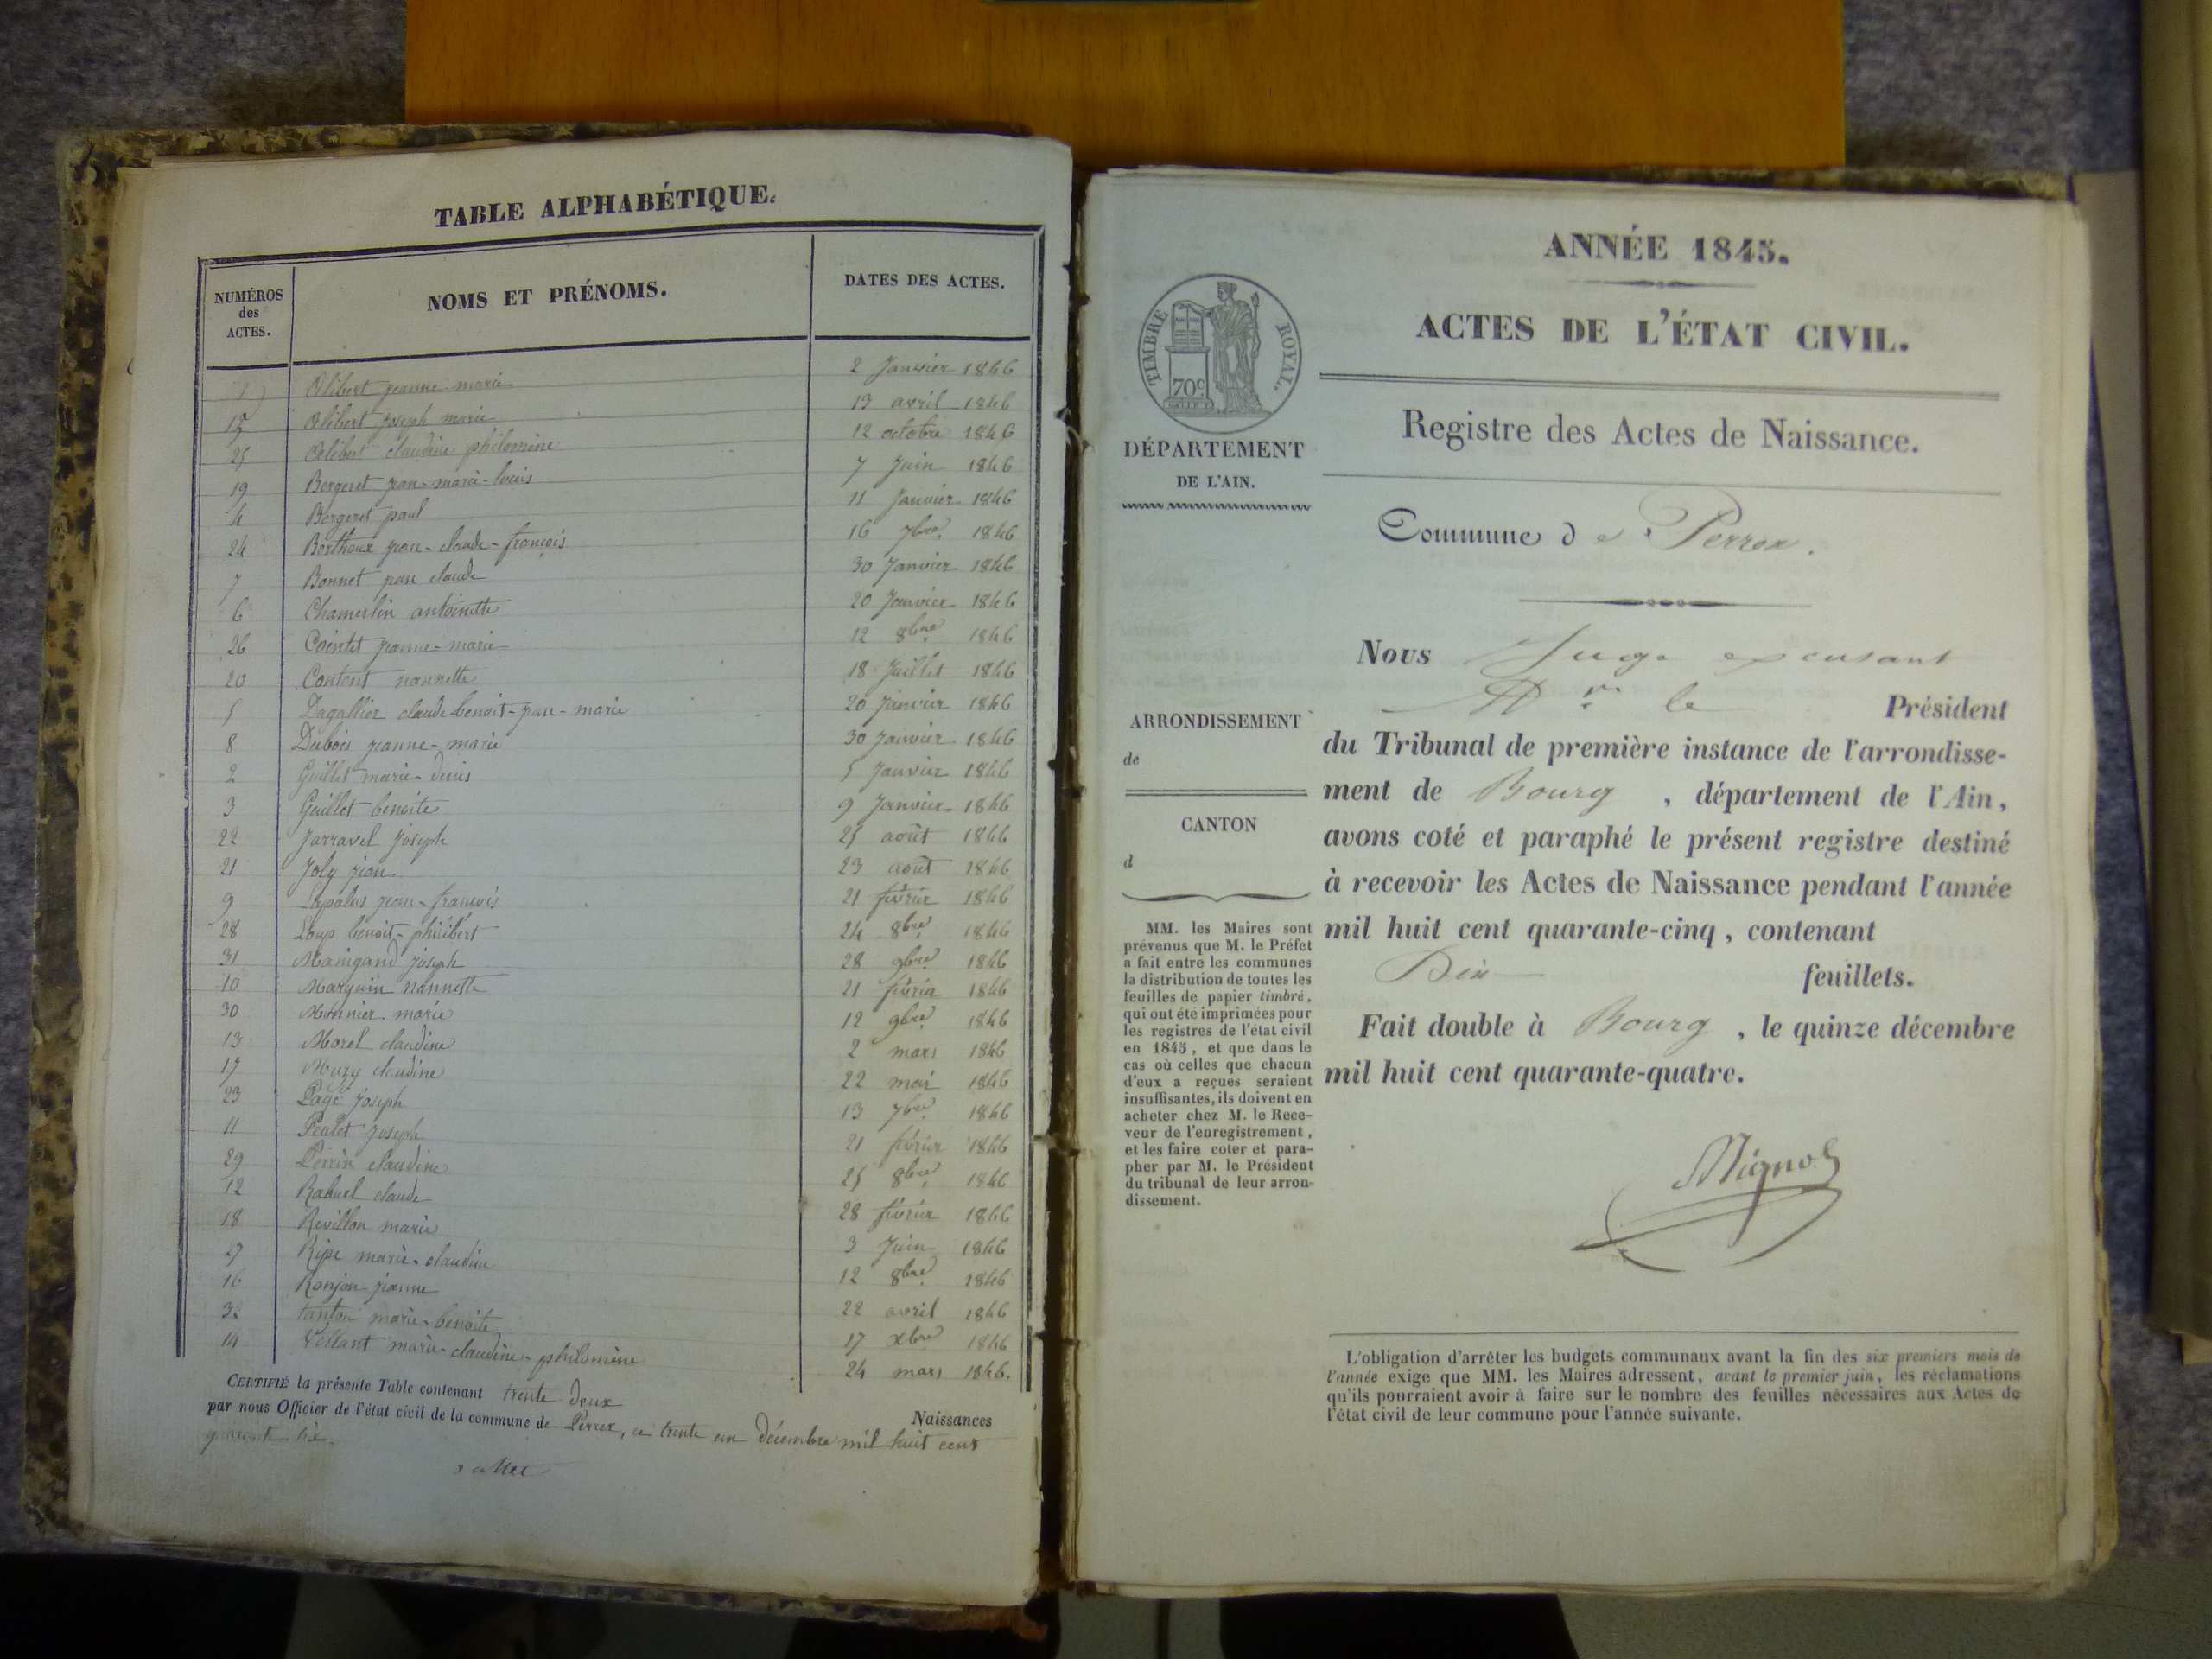 TABLE ALPHABÉTIQUE.
NUMÉROS des ACTES.
NOMS ET PRÉNOMS.
DATES DES ACTES.
1 Alibert jeanne-marie 2 Janvier 1846
15 Alibert joseph marie 13 avril 1846
25 Alibert claudine philomine 12 octobre 1846
19 Bergeret jean-marie-louis 7 Juin 1846
4 Bergeret paul 11 Janvier 1846
24 Berthoux jean-claude-françois 16 7bre 1846
7 Bonnet jean claude 30 Janvier 1846
6 Chamerlin antoinette 20 Janvier 1846
26 Cointet jeanne-marie 12 8bre 1846
20 Content nannette 18 Juillet 1846
5 Dagallier claude benoit-jean-marie 20 Janvier 1846
8 Dubois jeanne-marie 30 Janvier 1846
2 Guillet marie-denis 5 Janvier 1846
3 Guillet benoite 9 Janvier 1846
22 Jarravel Joseph 25 août 1846
21 Joly jean 23 août 1846
9 jean-françois 21 février 1846
28 Loup benoit-philibert 24 8bre 1846
31 Maingand joseph 28 9bre 1846
10 Marguin Nannette 21 février 1846
30 Monnier marie 12 9bre 1846
13 Morel claudine 2 mars 1846
17 Muzy claudine 22 mai 1846
23 Pagé Joseph 13 7bre 1846
11 Peulet Joseph 21 février 1846
29 Perrin claudine 25 8bre 1846
12 Rabuel claude 28 février 1846
18 Revillon marie 3 Juin 1846
27 Ripe marie-claudine 12 8bre 1846
16 Ronjon jeanne 22 avril 1846
32 tanton marie-benoite 17 xbre 1846
14 Vollant marie-claudine-philomine 24 mars 1846.
CERTIFIÉ la présente Table contenant trente deux Naissances
par nous Officier de l'état civil de la commune de Perrex, ce trente un décembre mil huit cent
quarante six.
ANNÉE 1845.
ACTES DE L'ÉTAT CIVIL.
TIMBRE ROYAL.
70c
Registre des Actes de Naissance.
DÉPARTEMENT
DE L'AIN.
Commune de Perrex.
Nous Juge excusant
Mr le Président
du Tribunal de première instance de l'arrondisse-
ment de Bourg, département de l'Ain,
avons coté et paraphé le présent registre destiné
à recevoir les Actes de Naissance pendant l'année
mil huit cent quarante-cinq, contenant
Dix feuillets.
Fait double à Bourg, le quinze décembre
mil huit cent quarante-quatre.
ARRONDISSEMENT
de
CANTON
d
MM. les Maires sont
prévenus que M. le Préfet
a fait entre les communes
la distribution de toutes les
feuilles de papier timbré,
qui ont été imprimées pour
les registres de l'état civil
en 1845, et que dans le
cas où celles que chacun
d'eux a reçues seraient
insuffisantes, ils doivent en
acheter chez M. le Rece-
veur de l'enregistrement,
et les faire coter et para-
pher par M. le Président
du tribunal de leur arron-
dissement.
L'obligation d'arrêter les budgets communaux avant la fin des six premiers mois de
l'année exige que MM. les Maires adressent, avant le premier juin, les réclamations
qu'ils pourraient avoir à faire sur le nombre des feuilles nécessaires aux Actes de
l'état civil de leur commune pour l'année suivante.